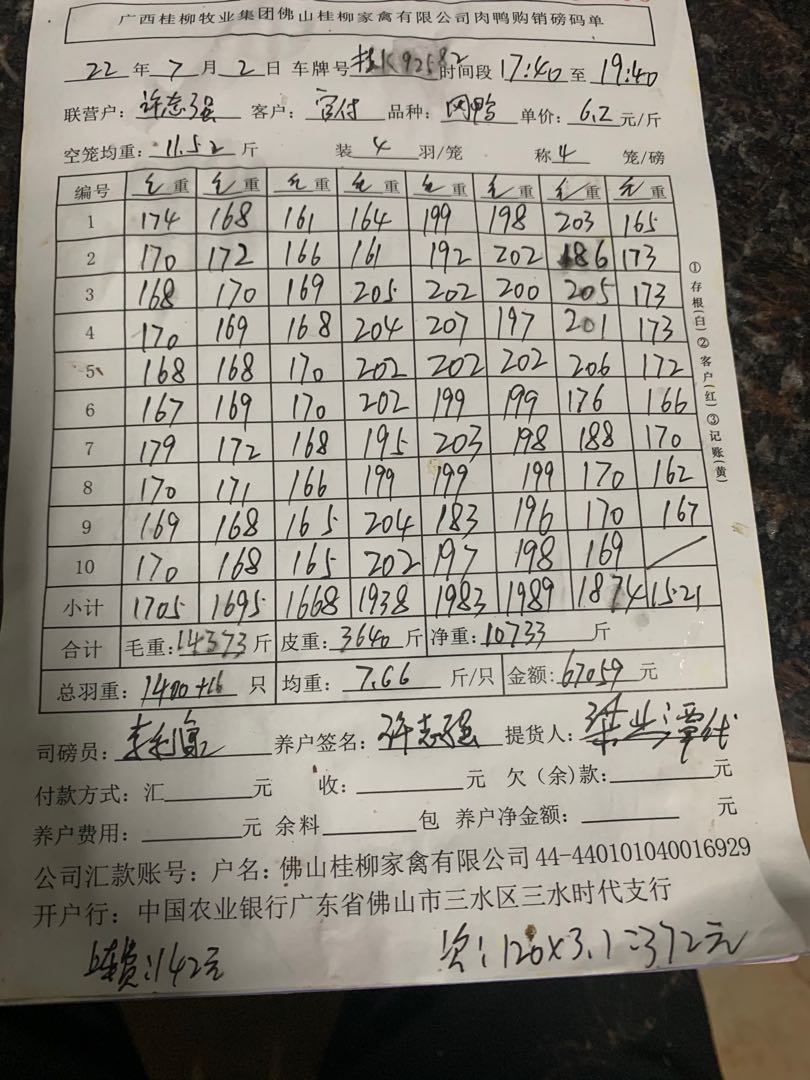 广西桂柳牧业集团佛山桂柳家禽有限公司肉鸭购销磅码单
22 年 7 月 2 日 车牌号 桂K92582 时间段 17:40 至 19:40
联营户: 许志强 客户: 品种: 单价: 6.2 元/斤
空笼均重: 11.52 斤 装 4 羽/笼 称 4 笼/磅
编号 毛重 毛重 毛重 毛重 毛重 毛重 毛重 毛重
1 174 168 161 164 199 198 203 165
2 170 172 166 161 192 202 186 173
3 168 170 169 205 202 200 205 173
4 170 169 168 204 207 197 201 173
5 168 168 170 202 202 202 206 172
6 167 169 170 202 199 199 176 166
7 179 172 168 195 203 198 188 170
8 170 171 166 199 199 199 170 162
9 169 168 165 204 183 196 170 167
10 170 168 165 202 197 198 169
小计 1705 1695 1668 1938 1983 1989 1874 1521
合计 毛重: 14373 斤 皮重: 3640 斤 净重: 10733 斤
总羽重: 1400+16 只 均重: 7.66 斤/只 金额: 67059 元
①存根(白)②客户(红)③记账(黄)
司磅员: 养户签名: 许志强 提货人:
付款方式: 汇 元 收: 元 欠(余)款: 元
养户费用: 元 余料 包 养户净金额: 元
公司汇款账号: 户名: 佛山桂柳家禽有限公司 44-440101040016929
开户行: 中国农业银行广东省佛山市三水区三水时代支行
:142元 : 120×3.1=372元